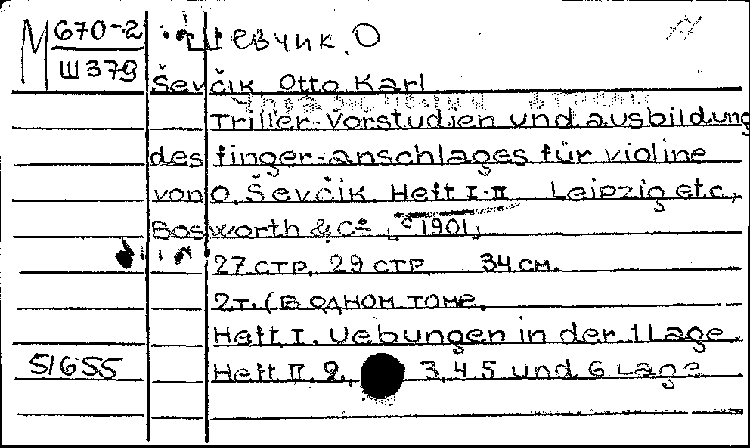 М 670-2 Шевчик, О
Ш379
Ševčik, Otto Karl
Triller-Vorstudien und ausbildung
des finger-anschlages für violine
von O. Ševčik. Heft I-II Leipzig etc.,
Bosworth & Co [c 1901]
27 стр. 29 стр 34 см.
2т. (в одном томе.
Heft I. Uebungen in der 1 Lage
51655 Heft II. 2. 3. 4 5 und 6 Lage